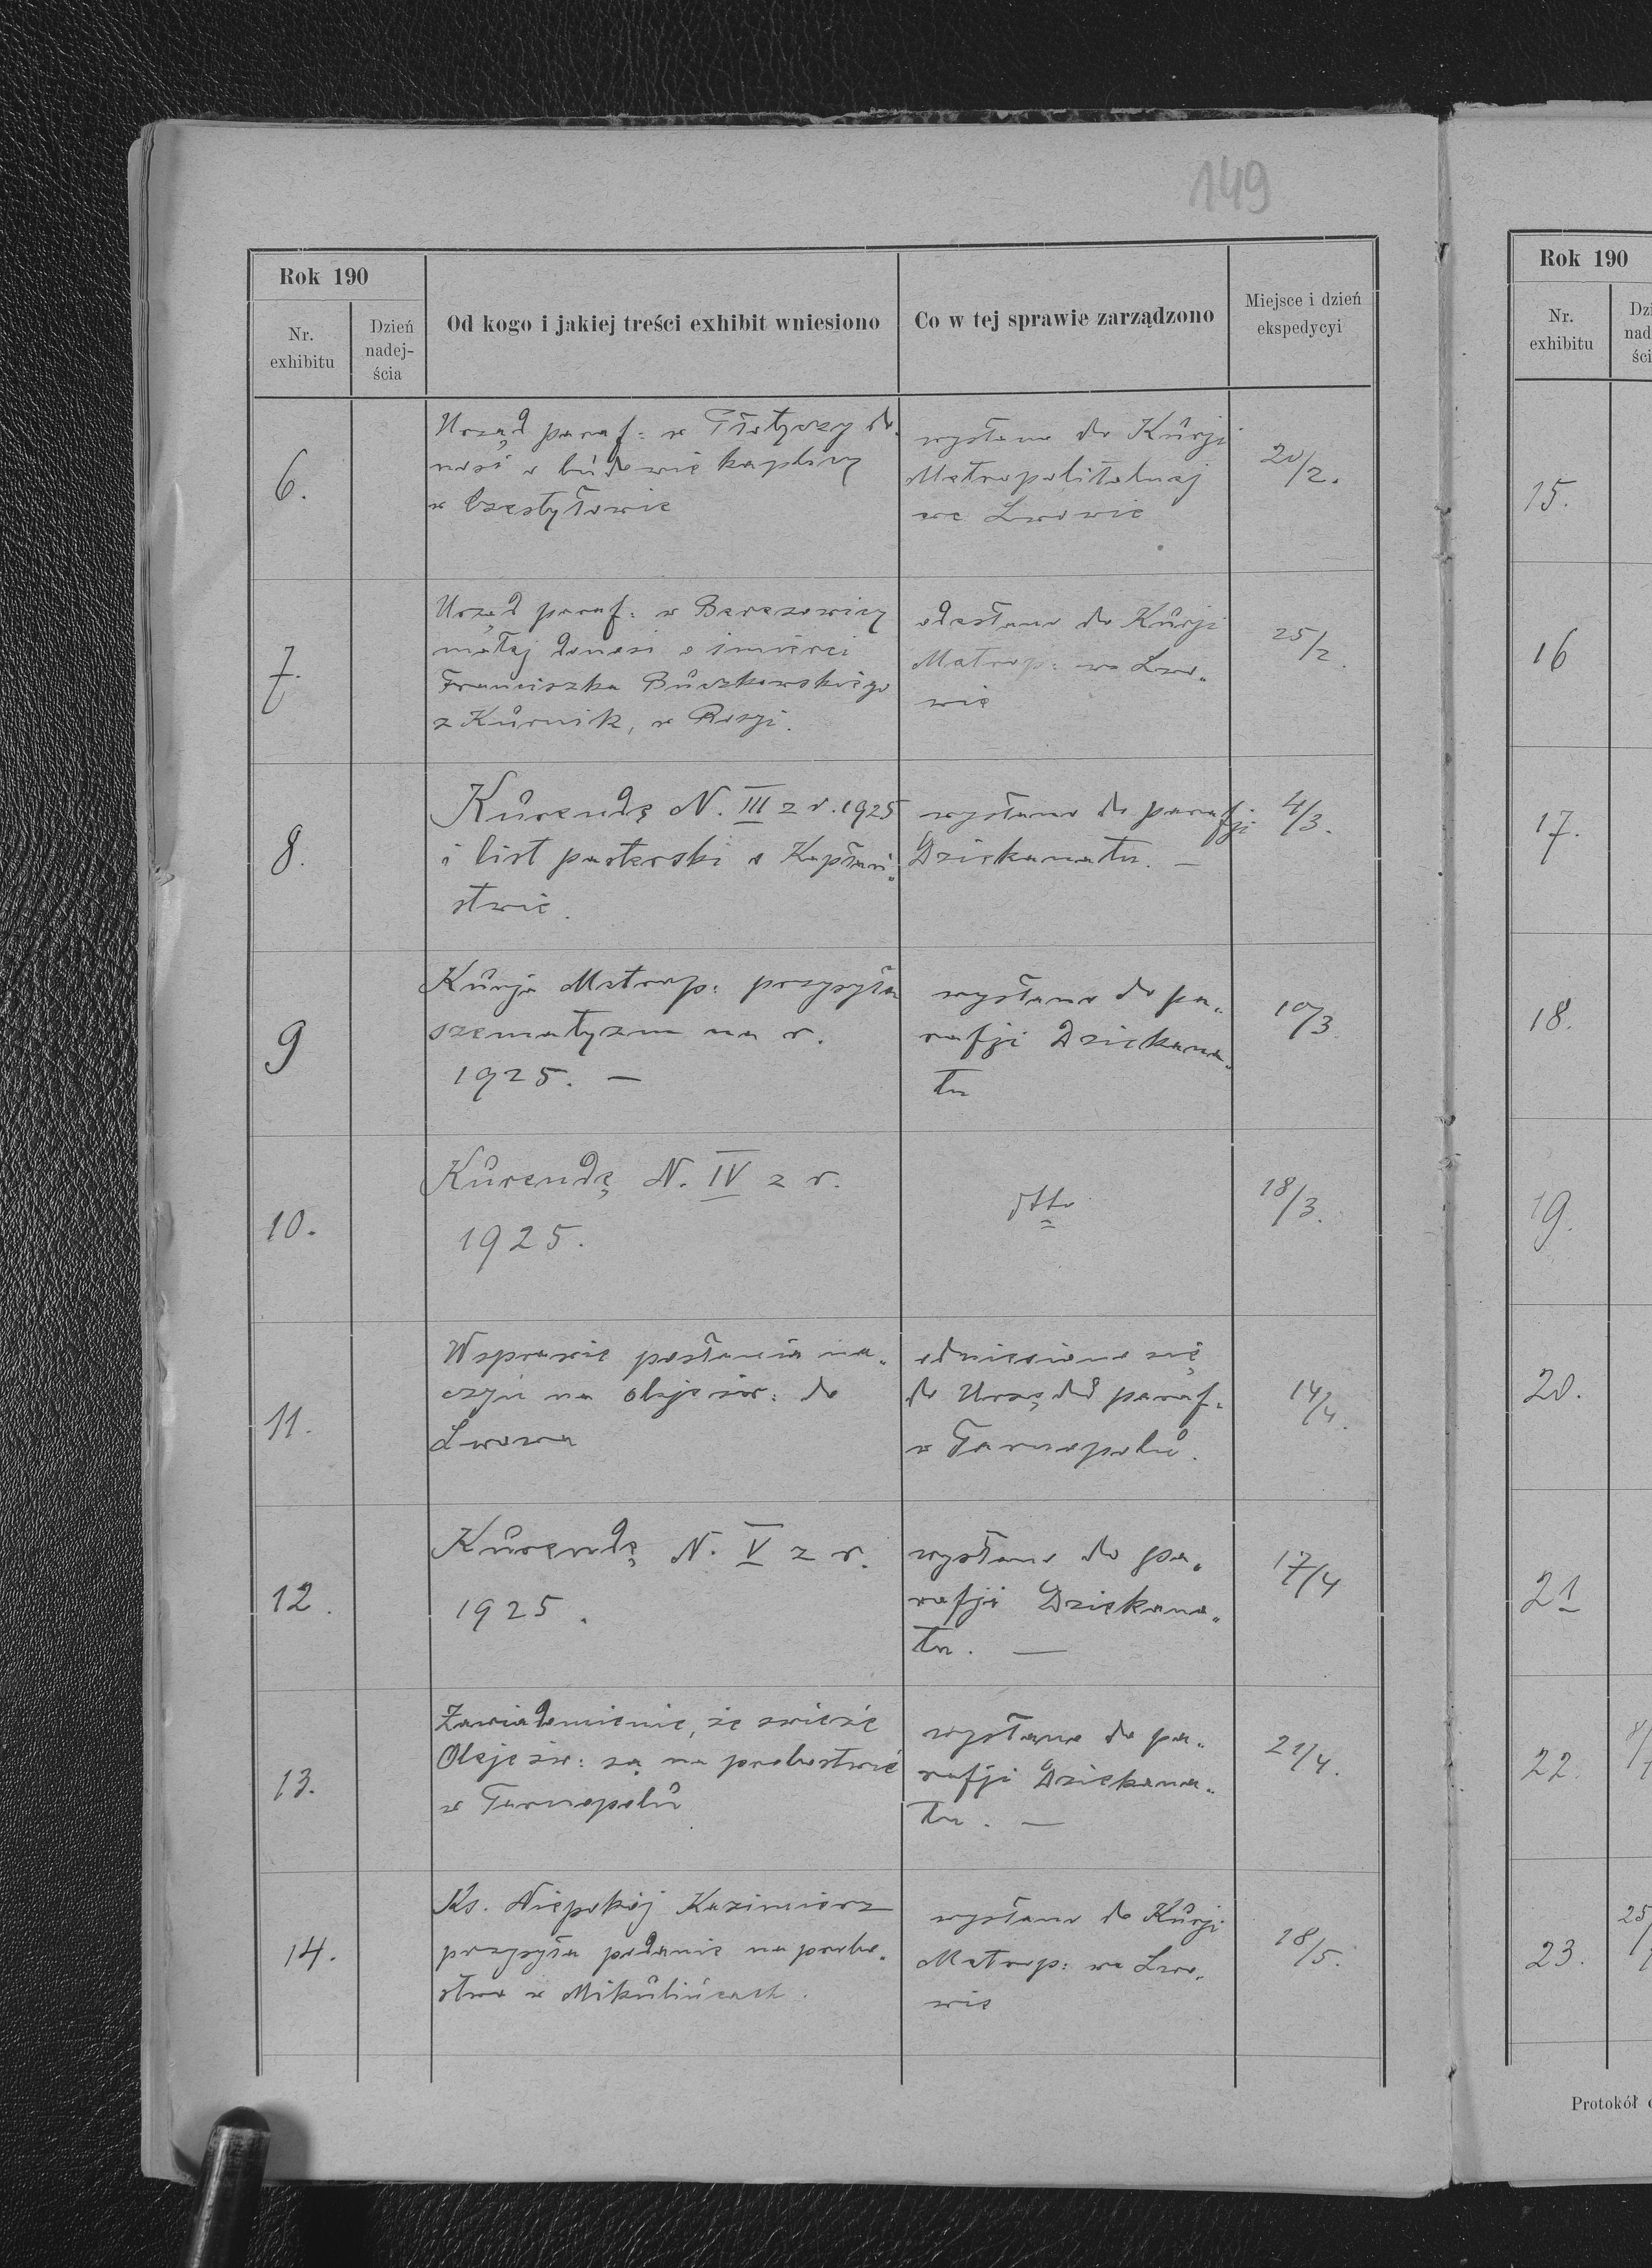 149
Rok 190
Nr.
exhibitu
Dzień
nadej-
ścia
Od kogo i jakiej treści exhibit wniesiono
Co w tej sprawie zarządzono
Miejsce i dzień
ekspedycyi
6.
Urząd paraf: w Płotyczy do
nosi o budowie kaplicy
w Czestyłowie
wysłano do Kurji
Metropolitalnej
we Lwowie
20/2.
7.
Urząd paraf: w Berezowicy
małej donosi o śmierci
Franciszka Buczkowskiego
z Kurnik, w Rosji.
odesłano do Kurji
Metrop: we Lwo„
wie
25/2.
8.
Kurendę N. III z r. 1925
i list pasterski o Kapłań„
stwie.
wysłano do parafji
Dziekanatu. —
4/3.
9
Kurja Metrop: przysyła
szematyzm na r.
1925. —
wysłano do pa„
rafji Dziekana„
tu
10/3.
10.
Kurendę N. IV z r.
1925.
dtto
18/3.
11.
W sprawie posłania na„
czyń na oleje św: do
Lwowa
odniesiono się
do Urzędu paraf.
w Tarnopolu.
14/4.
12.
Kurendę N. V z r.
1925.
wysłano do pa„
rafji Dziekana„
tu. —
17/4
13.
Zawiadomienie, że świeże
Oleje św: są na probostwie
w Tarnopolu
wysłano do pa„
rafji Dziekana„
tu. —
21/4.
14.
Ks. Niepokój Kazimierz
przysyła podanie na probo„
stwo w Mikulińcach.
wysłano do Kurji
Metrop: we Lwo„
wie
18/5.
Rok 190
Nr.
exhibitu
15.
16
17.
18.
19.
20.
21
22.
23.
Protokół